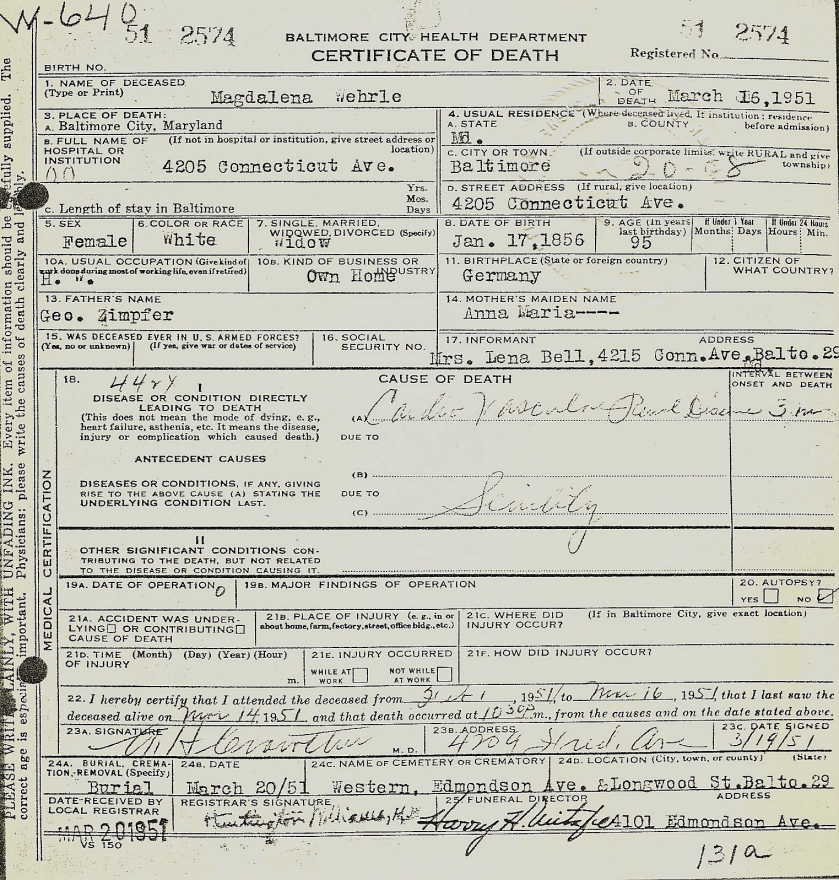 W-640
51 2574
BALTIMORE CITY HEALTH DEPARTMENT
CERTIFICATE OF DEATH
51 2574
Registered No.
BIRTH NO.
1. NAME OF DECEASED
(Type or Print)
Magdalena Wehrle
2. DATE
OF
DEATH
March 16, 1951
3. PLACE OF DEATH:
A. Baltimore City, Maryland
B. FULL NAME OF (If not in hospital or institution, give street address or
HOSPITAL OR location)
INSTITUTION
00
4205 Connecticut Ave.
Yrs.
Mos.
C. Length of stay in Baltimore Days
4. USUAL RESIDENCE (Where deceased lived. If institution: residence
A. STATE B. COUNTY before admission)
Md.
C. CITY OR TOWN (If outside corporate limits, write RURAL and give
Baltimore township)
D. STREET ADDRESS (If rural, give location)
4205 Connecticut Ave.
5. SEX
Female
6. COLOR OR RACE
White
7. SINGLE, MARRIED,
WIDOWED, DIVORCED (Specify)
Widow
8. DATE OF BIRTH
Jan. 17, 1856
9. AGE (In years
last birthday)
95
If Under 1 Year
Months: Days
If Under 24 Hours
Hours: Min.
10A. USUAL OCCUPATION (Give kind of
work done during most of working life, even if retired)
H. W.
10B. KIND OF BUSINESS OR
INDUSTRY
Own Home
11. BIRTHPLACE (State or foreign country)
Germany
12. CITIZEN OF
WHAT COUNTRY?
13. FATHER'S NAME
Geo. Zimpfer
14. MOTHER'S MAIDEN NAME
Anna Maria----
15. WAS DECEASED EVER IN U. S. ARMED FORCES?
(Yes, no or unknown) (If yes, give war or dates of service)
16. SOCIAL
SECURITY NO.
17. INFORMANT ADDRESS
Mrs. Lena Bell, 4215 Conn. Ave. Balto. 29
Md.
18.
I
CAUSE OF DEATH
INTERVAL BETWEEN
ONSET AND DEATH
DISEASE OR CONDITION DIRECTLY
LEADING TO DEATH
(This does not mean the mode of dying, e. g.,
heart failure, asthenia, etc. It means the disease,
injury or complication which caused death.)
(A) Cardio Vascular Renal Disease 3
DUE TO
ANTECEDENT CAUSES
DISEASES OR CONDITIONS, IF ANY, GIVING
RISE TO THE ABOVE CAUSE (A) STATING THE
UNDERLYING CONDITION LAST.
(B)
DUE TO
(C) Senility
II
OTHER SIGNIFICANT CONDITIONS CON-
TRIBUTING TO THE DEATH, BUT NOT RELATED
TO THE DISEASE OR CONDITION CAUSING IT.
MEDICAL CERTIFICATION
19A. DATE OF OPERATION 0
19B. MAJOR FINDINGS OF OPERATION
20. AUTOPSY?
YES NO
21A. ACCIDENT WAS UNDER-
LYING OR CONTRIBUTING
CAUSE OF DEATH
21B. PLACE OF INJURY (e. g., in or
about home, farm, factory, street, office bldg., etc.)
21C. WHERE DID (If in Baltimore City, give exact location)
INJURY OCCUR?
21D. TIME (Month) (Day) (Year) (Hour)
OF INJURY
m.
21E. INJURY OCCURRED
WHILE AT
WORK
NOT WHILE
AT WORK
21F. HOW DID INJURY OCCUR?
22. I hereby certify that I attended the deceased from 1951, to Mar 16, 1951 that I last saw the
deceased alive on Mar 14, 1951 and that death occurred at 1030P m., from the causes and on the date stated above.
23A. SIGNATURE
M. D.
23B. ADDRESS
4209 Fred. Ave
23C. DATE SIGNED
3/19/51
24A. BURIAL, CREMA-
TION, REMOVAL (Specify)
Burial
24B. DATE
March 20/51
24C. NAME OF CEMETERY OR CREMATORY
24D. LOCATION (City, town, or county) (State)
Western, Edmondson Ave. & Longwood St. Balto. 29
DATE RECEIVED BY
LOCAL REGISTRAR
MAR 20 1951
VS 150
REGISTRAR'S SIGNATURE
Huntington Williams, M.D.
25. FUNERAL DIRECTOR ADDRESS
Harry H. Witzke 4101 Edmondson Ave.
131a